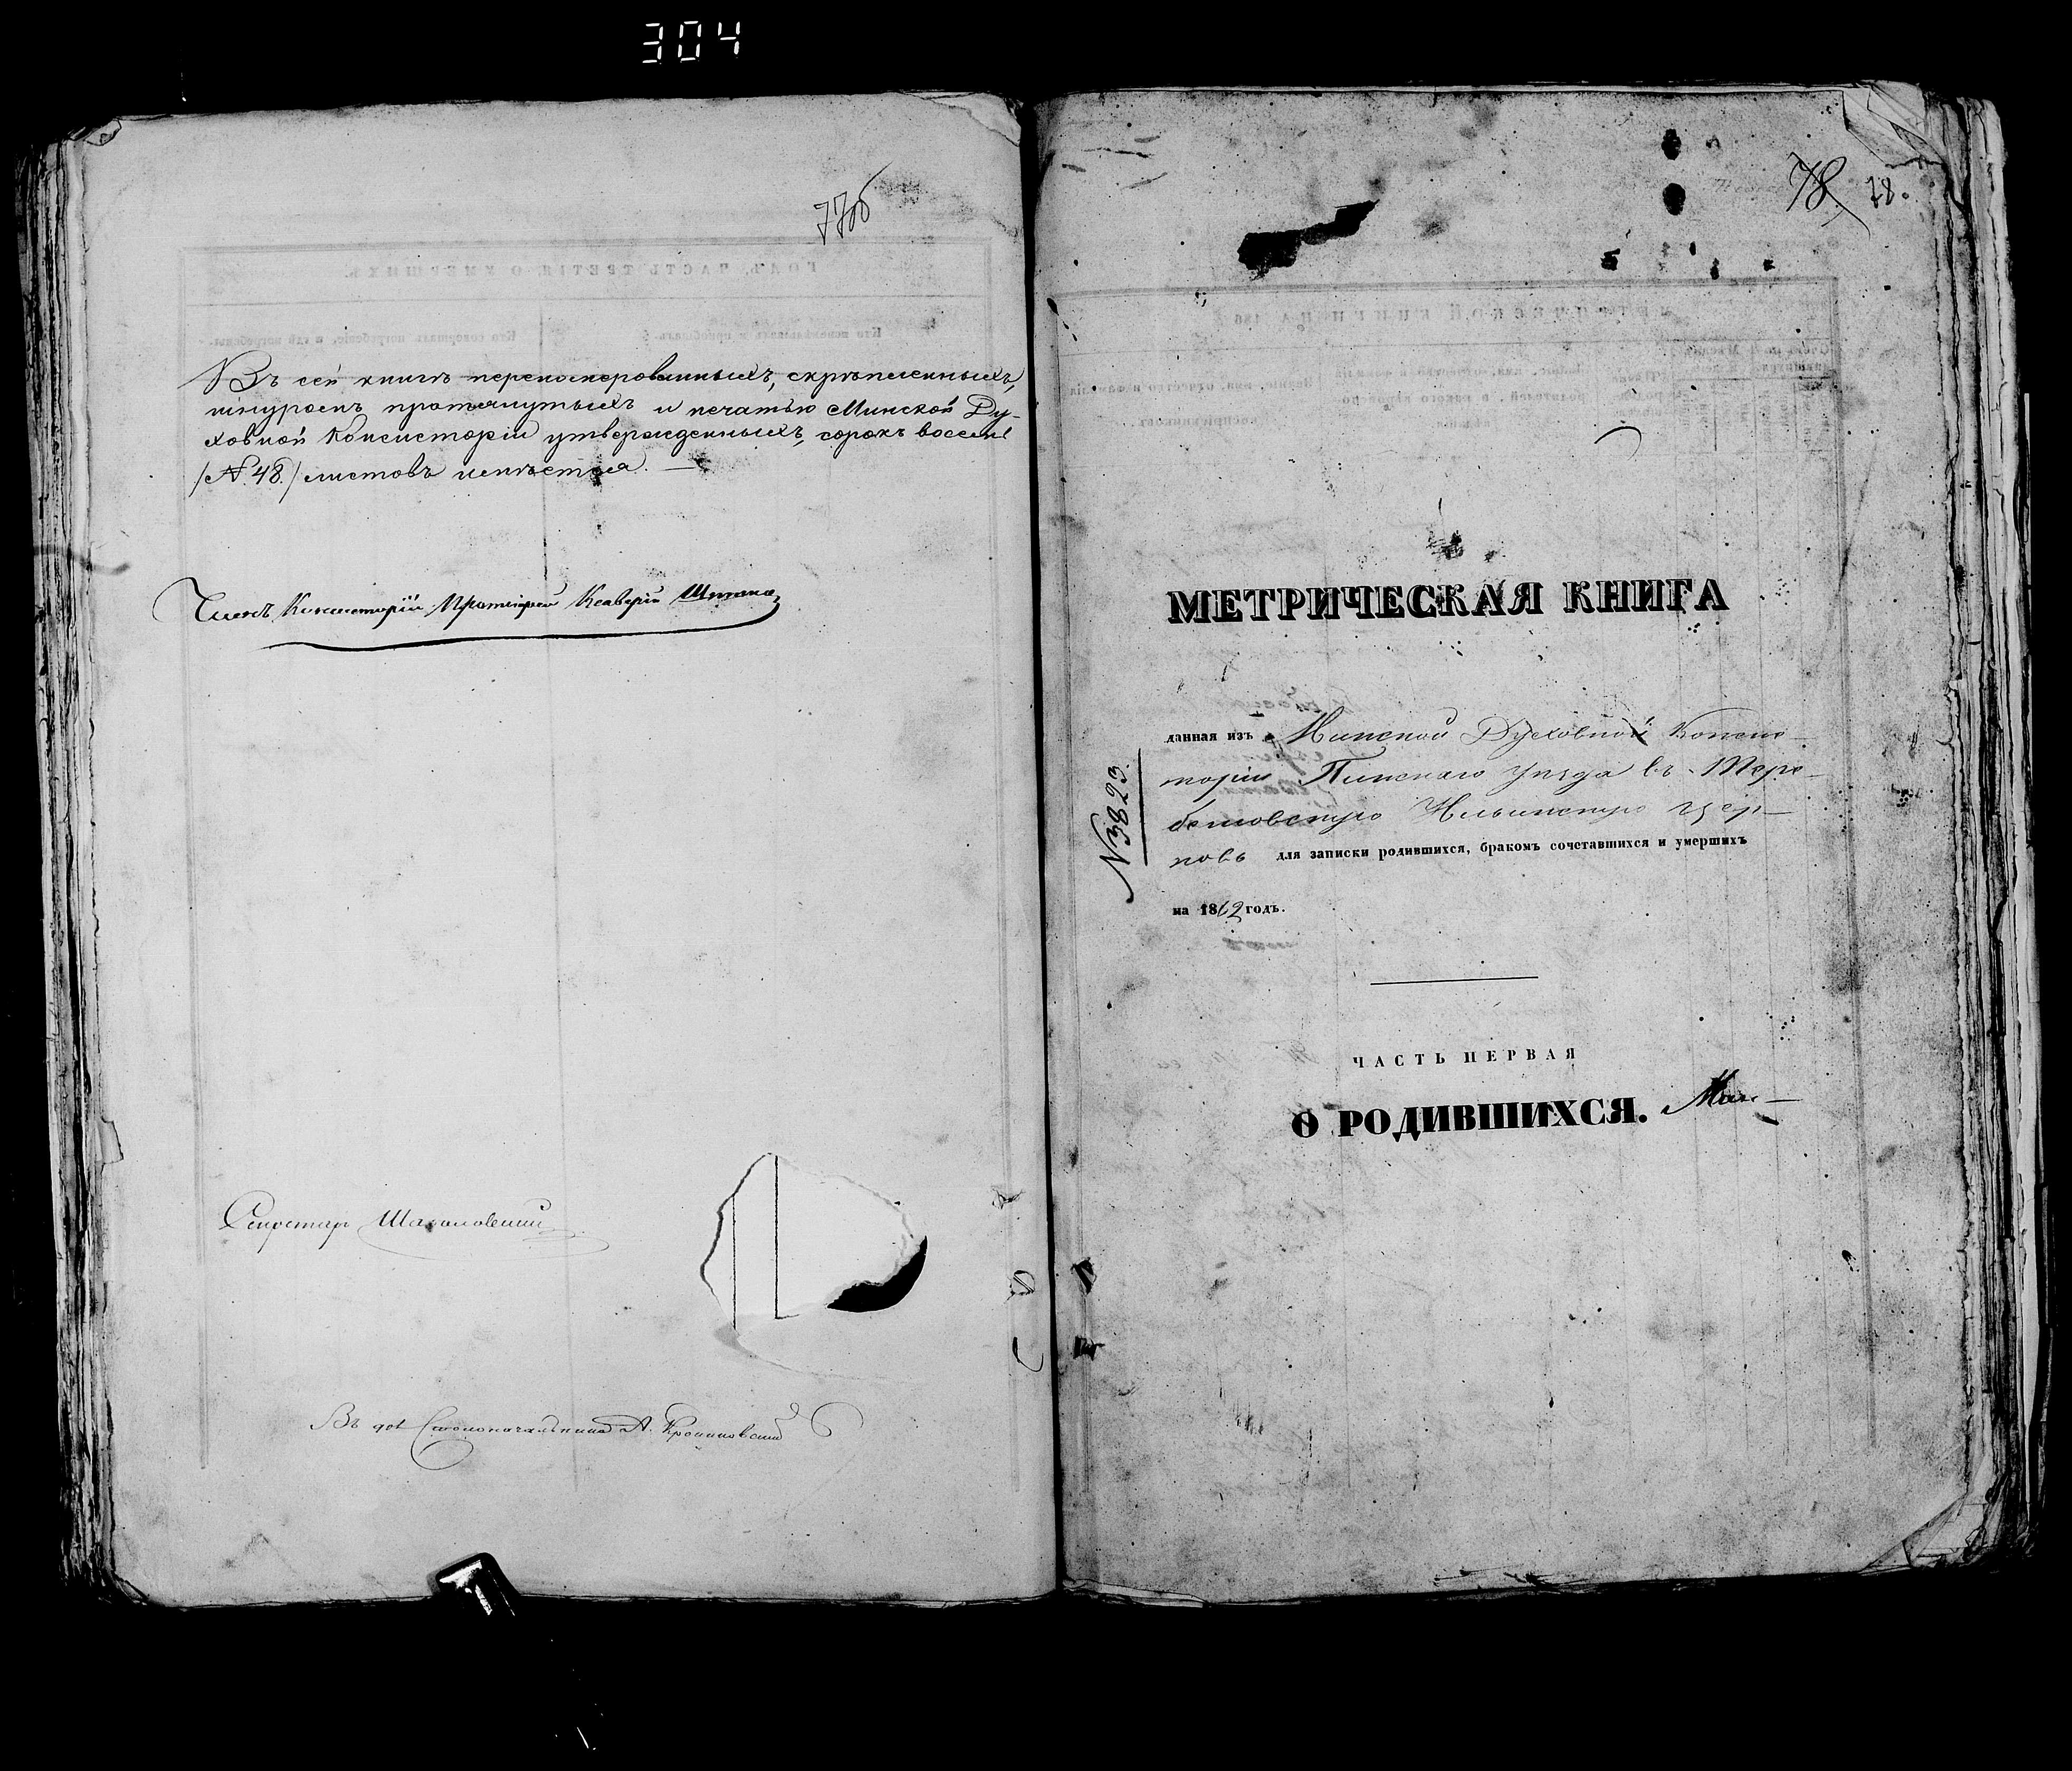 304
77об
Въ сей книгѣ перенумерованныхъ, скрѣпленныхъ,
шнуромъ протянутыхъ и печатью Минской Ду-
ховной Консисторіи утвержденныхъ, сорокъ восемь
/№ 48./ листовъ имѣется.
Членъ Консисторіи Протоіерей Ксаверій
Секретарь
Въ дол. Столоначальника А.
78 78.
МЕТРИЧЕСКАЯ КНИГА
данная изъ Минской Духовной Консис-
торіи Пинскаго уѣзда въ Тере-
бежовскую Ильинскую цер-
ковь для записки родившихся, бракомъ сочетавшихся и умершихъ
№3823.
на 1862 годъ.
ЧАСТЬ ПЕРВАЯ
О РОДИВШИХСЯ.